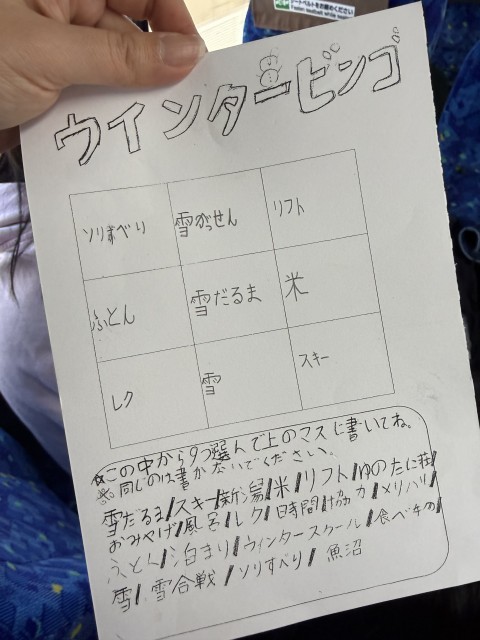 シートベルトをお締めください
Fasten seatbelt while seated
ウインタービンゴ
ソリすべり 雪がっせん リフト
ふとん 雪だるま 米
レク 雪 スキー
☆この中から9つ選んで上のマスに書いてね。
※同じのは書かないでください。
雪だるま/スキー/新潟/米/リフト/ゆのたに荘/
おみやげ/風呂/レク/時間/協力/メリハリ/
ふとん/泊まり/ウィンタースクール/食べもの/
雪/雪合戦/ソリすべり/魚沼